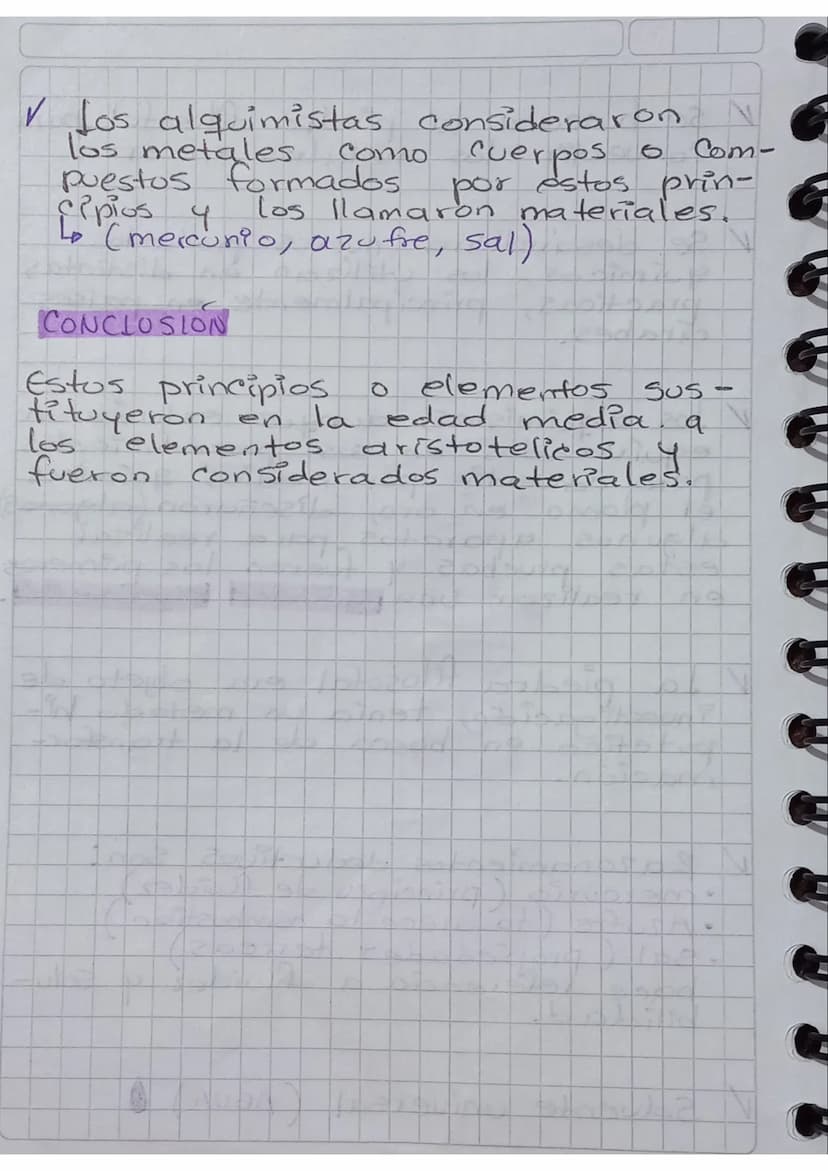 ✓ Los alquimistas consideraron
los metales como cuerpos o com-
puestos formados por estos prin-
cipios y los llamaron materiales.
↳ (mercurio, azufre, sal)
CONCLUSIÓN
Estos principios o elementos sus-
tituyeron en la edad media a
los elementos aristotelicos y
fueron considerados materiales.